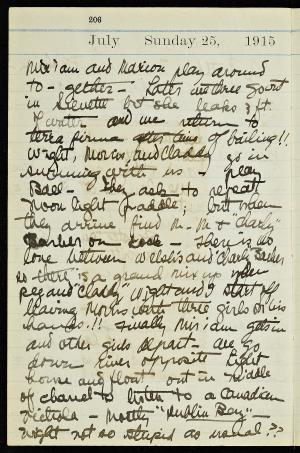 206
July Sunday 25, 1915
Miriam and Marion play around
to-gether - Later we three go out
in but she leaks 3 ft.
of water - and we return to
terra firma after of bailing!!
Wright, Morris, and Claddy go in
swimming with us - play
Ball - They ask to repeat
moon light paddle; but when
they arrive find M - M & "Charly"
Barker on dock - There is no
love between and Charly Barker
so there is a grand mix up when
Peg and "Claddy" Wight and I start off
leaving Morris with three girls on his
hands!! Finally Miriam gets in
and other girls depart - we go
down river opposite Light
house and float out in middle
of channel to listen to a Canadian
Victrola - Mostly "Dublin Bay" -
Wight not so stupid as usual??